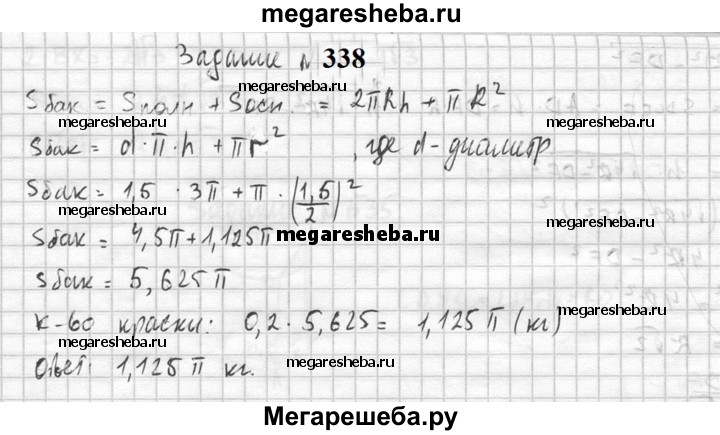 megaresheba.ru
Задание № 338
megaresheba.ru megaresheba.ru
Sбак = Sполн + Sосн. = 2πRh + πR²
megaresheba.ru megaresheba.ru
Sбак = d·π·h + πr², где d - диаметр
Sбак = 1,5 · 3π + π · (1,5/2)²
megaresheba.ru megaresheba.ru
Sбак = 4,5π + 1,125π megaresheba.ru
Sбак = 5,625π
megaresheba.ru megaresheba.ru
к-во краски: 0,2 · 5,625 = 1,125π (кг)
Ответ: 1,125π кг.
megaresheba.ru megaresheba.ru
Мегарешеба.ру